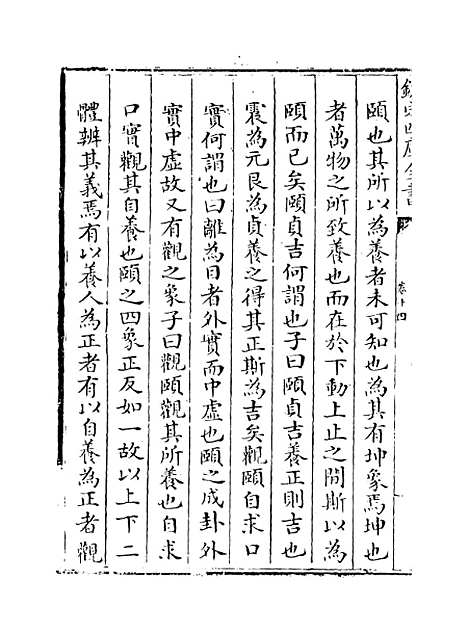 欽定四庫全書
卷十四
頤也其所以為養者未可知也為其有坤象焉坤也
者萬物之所致養也而在於下動上止之間斯以為
頤而已矣頤貞吉何謂也子曰頤貞吉養正則吉也
震為元艮為貞養之得其正斯為吉矣觀頤自求口
實何謂也曰離為目者外實而中虛也頤之成卦外
實中虛故又有觀之象子曰觀頤觀其所養也自求
口實觀其自養也頤之四象正反如一故以上下二
體辨其義焉有以養人為正者有以自養為正者觀